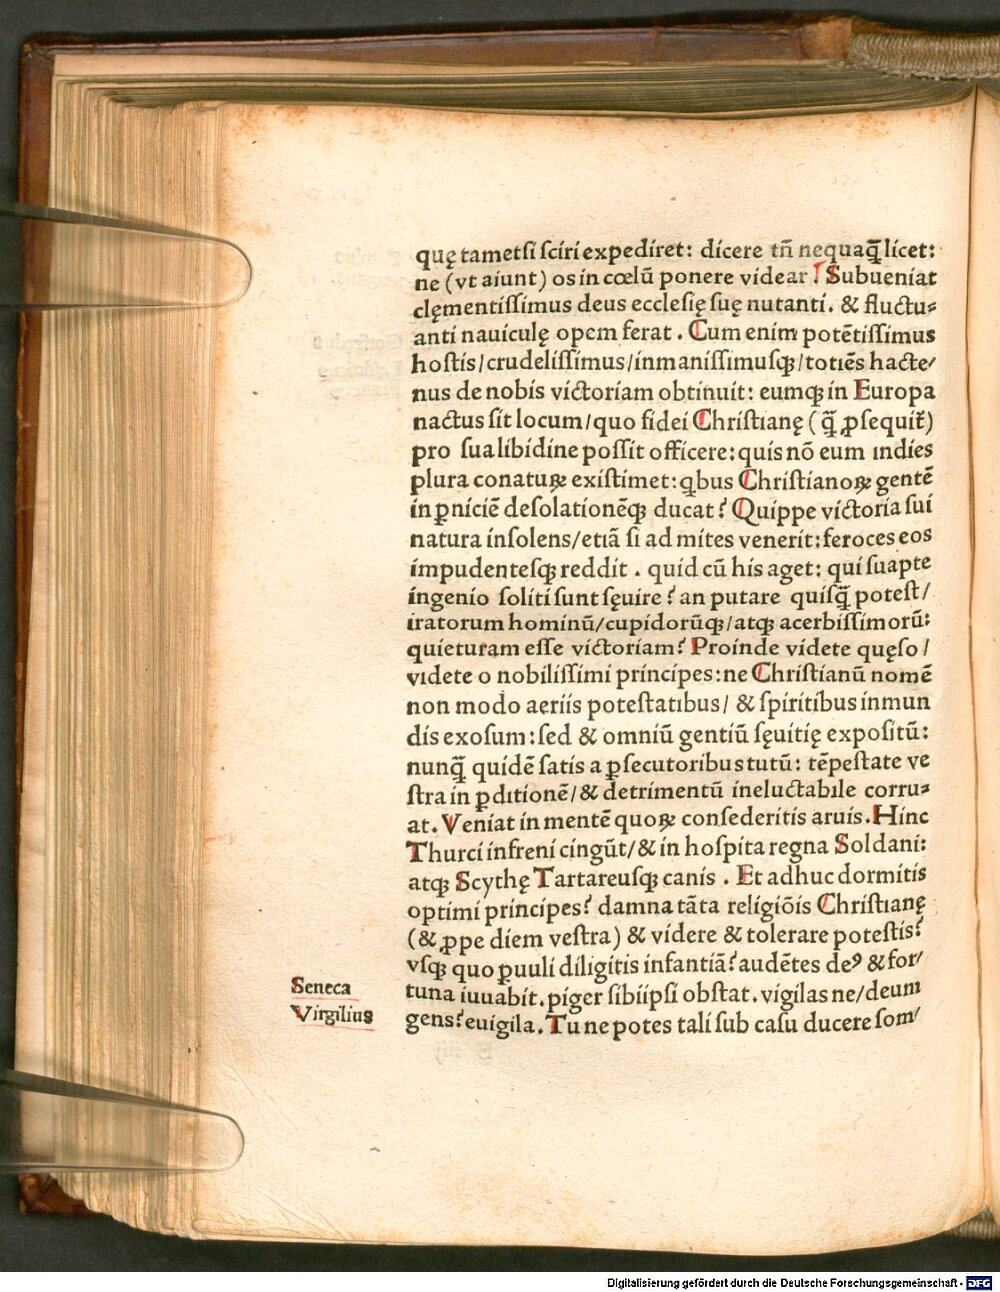 quę tametsi sciri expediret: dicere tñ nequaq̃ licet:
ne (vt aiunt) os in cœlũ ponere videar? Subueniat
clęmentissimus deus ecclesię suę nutanti. & fluctu-
anti nauiculę opem ferat. Cum enim potẽtissimus
hostis/crudelissimus/inmanissimusqꝫ/totiẽs hacte/
nus de nobis victoriam obtinuit: eumqꝫ in Europa
nactus sit locum/quo fidei Christianę (q̃ ꝓsequit̃)
pro sua libidine possit officere: quis nõ eum indies
plura conatuꝝ existimet: qbus Christianoꝝ gentẽ
in ꝑniciẽ desolationẽqꝫ ducat? Quippe victoria sui
natura insolens/etiã si ad mites venerit: feroces eos
impudentesqꝫ reddit. quid cũ his aget: qui suapte
ingenio soliti sunt sęuire? an putare quisq̃ potest/
iratorum hominũ/cupidorũqꝫ/atqꝫ acerbissimorũ:
quieturam esse victoriam? Proinde videte quęso/
videte o nobilissimi principes: ne Christianũ nomẽ
non modo aeriis potestatibus/ & spiritibus inmun
dis exosum: sed & omniũ gentiũ sęuitię expositũ:
nunq̃ quidẽ satis a ꝑsecutoribus tutũ: tẽpestate ve
stra in ꝑditionẽ/& detrimentũ ineluctabile corru-
at. Veniat in mentẽ quoꝝ consederitis aruis. Hinc
Thurci infreni cingũt/& in hospita regna Soldani:
atqꝫ Scythę Tartareusqꝫ canis. Et adhuc dormitis
optimi principes? damna tãta religiõis Christianę
(& ꝓpe diem vestra) & videre & tolerare potestis?
vsqꝫ quo ꝑuuli diligitis infantiã? audẽtes deꝰ & for/
tuna iuuabit. piger sibiipsi obstat. vigilas ne/deum
gens? euigila. Tu ne potes tali sub casu ducere som/
Seneca
Virgilius
Digitalisierung gefördert durch die Deutsche Forschungsgemeinschaft - DFG